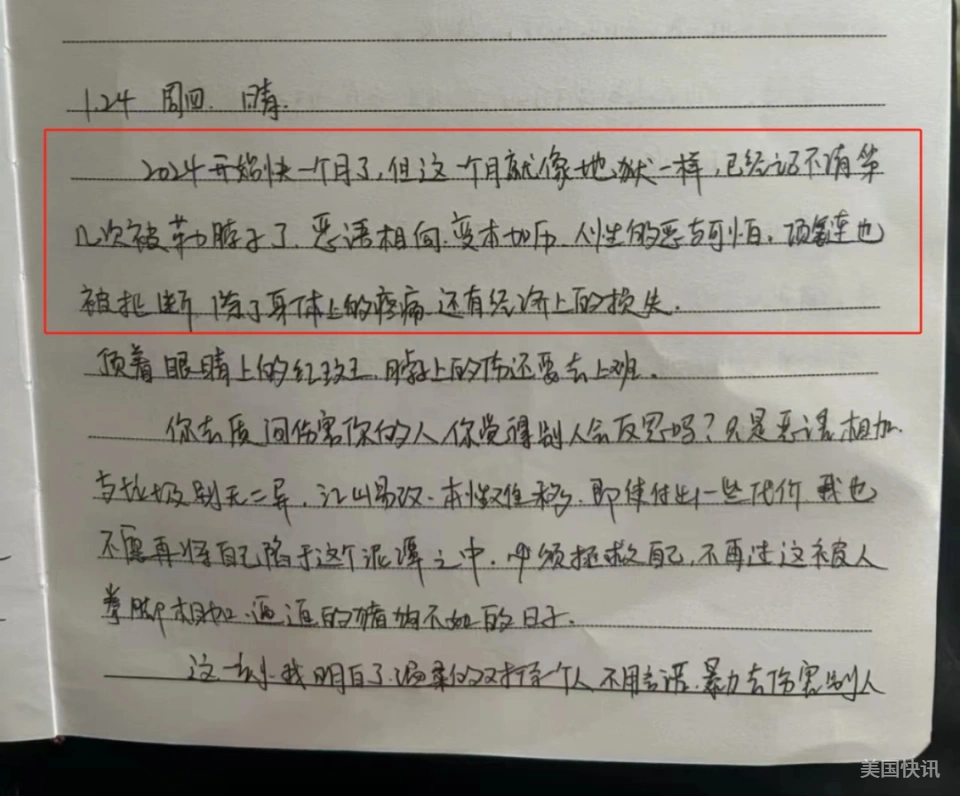 1.24 周四. 晴.
2024开始快一个月了,但这一个月就像地狱一样,已经记不清第
几次被勒脖子了.恶语相向.变本加历.人性的恶去可怕.项链也
被扯断.除了身体上的疼痛.还有经济上的损失.
顶着眼睛上的红 .脖子上的伤还要去上班.
你去质问伤害你的人.你觉得别人会反思吗?只是恶语相加.
与垃圾别无二异.江山易改.本性难移.即使付出一些代价 我也
不愿再将自己陷于这个泥潭之中.必须拯救自己,不再过这被人
拳脚相加.逼迫的猪狗不如的日子.
这一刻.我明白了.温柔的对待一个人 不用言语.暴力去伤害别人
美国快讯